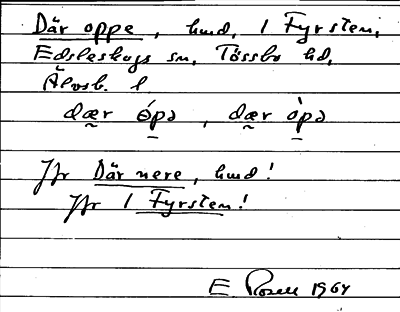 Där oppe, hmd, 1 Fyrsten,
Edsleskogs sn, Tössbo hd,
Älvsb. l
dær ópə, dær òpə
Jfr Där nere, hmd!
Jfr 1 Fyrsten!
E. Rosell 1964